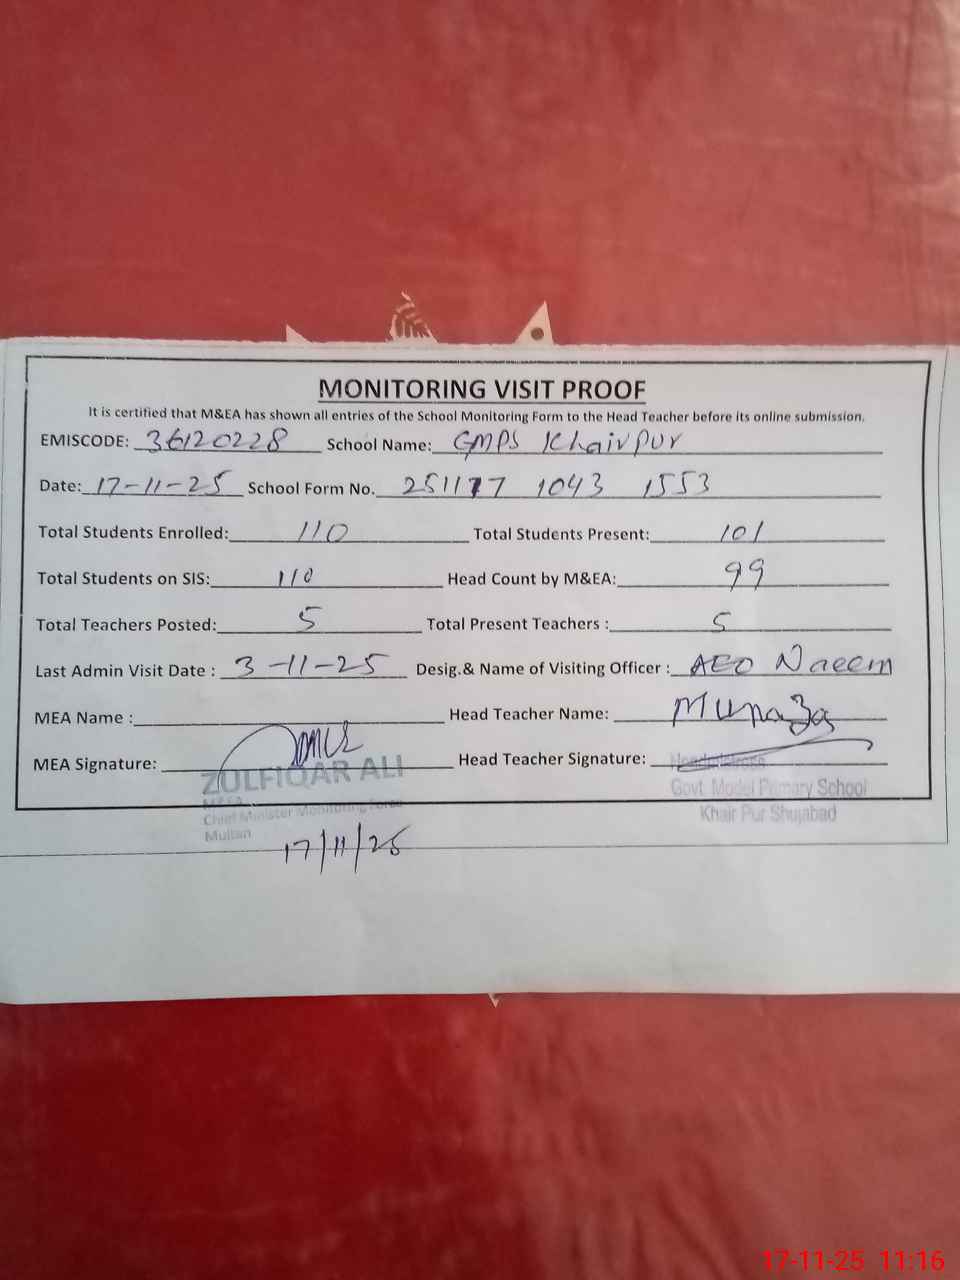 MONITORING VISIT PROOF
It is certified that M&EA has shown all entries of the School Monitoring Form to the Head Teacher before its online submission.
EMISCODE: 36120228 School Name: GMPS Khairpur
Date: 17-11-25 School Form No. 251117 1043 1553
Total Students Enrolled: 110 Total Students Present: 101
Total Students on SIS: 110 Head Count by M&EA: 99
Total Teachers Posted: 5 Total Present Teachers : 5
Last Admin Visit Date : 3-11-25 Desig.& Name of Visiting Officer : AEO Naeem
MEA Name : Head Teacher Name: Munaza
MEA Signature: Head Teacher Signature:
ZULFIQAR ALI
Chief Minister Monitoring Force
Multan
Headmistress
Govt. Model Primary School
Khair Pur Shujabad
17/11/25
17-11-25 11:16